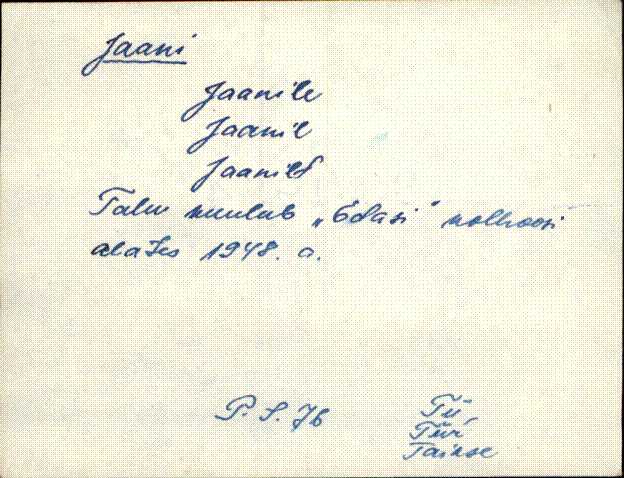 Jaani
Jaanile
Jaanil
Jaanilt
Talu kuulub „Edasi" kolhoosi
alates 1948. a.
P. S. 76
Tü,
Tür
Taikse